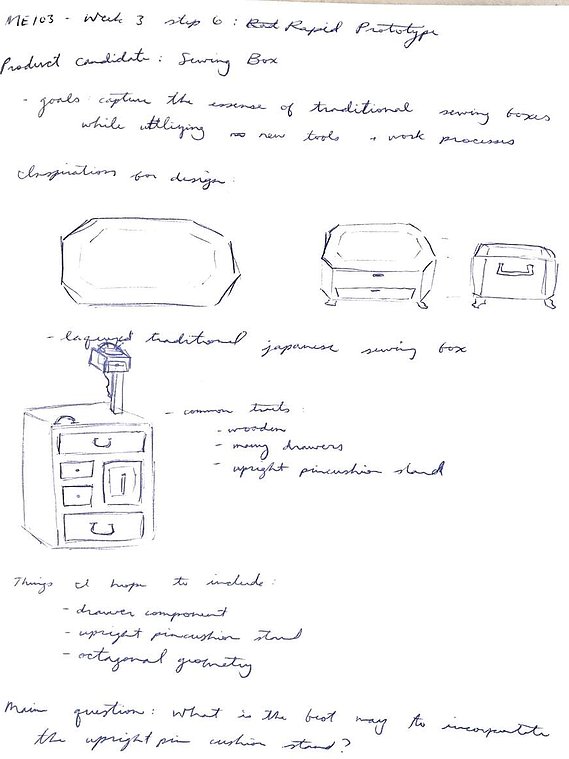 ME103 - Week 3 step 6: Rapid Prototype
Product candidate: Sewing Box
- goals: capture the essense of traditional sewing boxes
while utilizing new tools + work processes
Inspirations for design:
- laquered traditional japanese sewing box
- common traits:
- wooden
- many drawers
- upright pincushion stand
Things I hope to include:
- drawer component
- upright pincushion stand
- octagonal geometry
Main question: what is the best way to incorporate
the upright pin cushion stand?